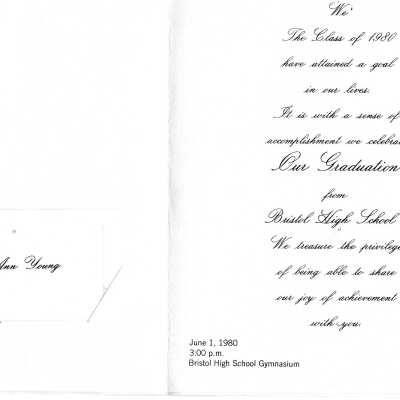 Ann Young
We
The Class of 1980
have attained a goal
in our lives.
It is with a sense of
accomplishment we celebrate
Our Graduation
from
Bristol High School
We treasure the privilege
of being able to share
our joy of achievement
with you.
June 1, 1980
3:00 p.m.
Bristol High School Gymnasium